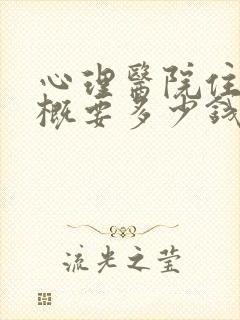 心理醫院住
概要多少錢
流光之莹